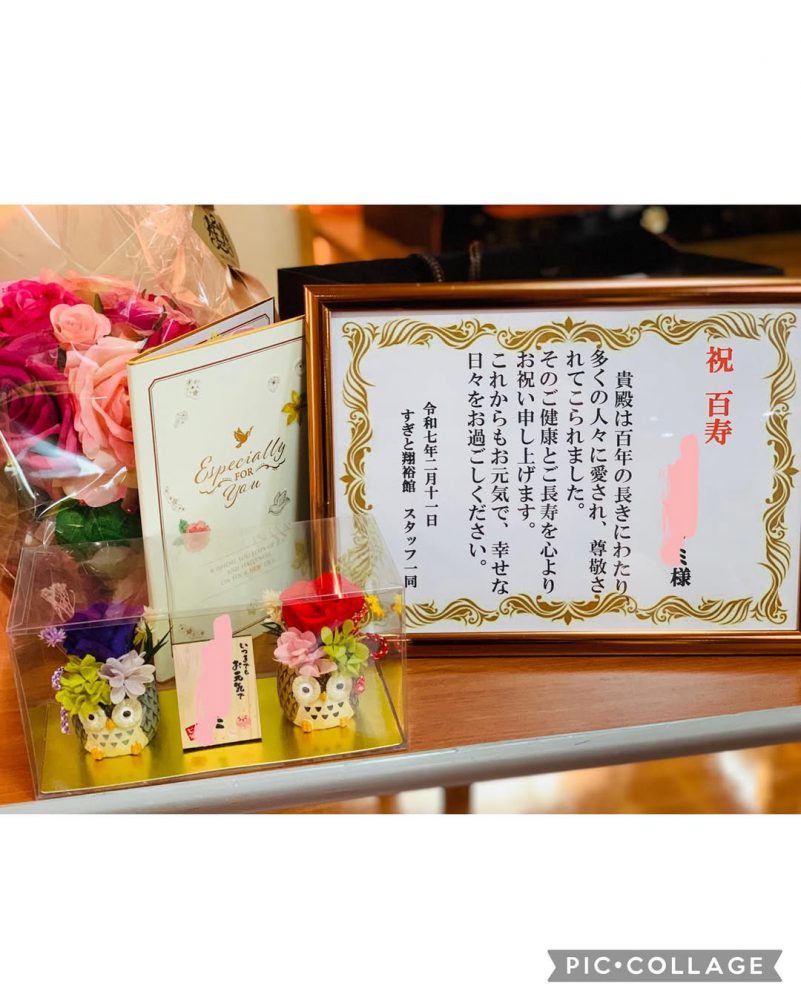 祝 百寿
ミ様
貴殿は百年の長きにわたり
多くの人々に愛され、尊敬さ
れてこられました。
そのご健康とご長寿を心より
お祝い申し上げます。
これからもお元気で、幸せな
日々をお過ごしください。
令和七年二月十一日
すぎと翔裕館 スタッフ一同
Especially
FOR
You
いつまでも
お元気で
ミ
PIC•COLLAGE